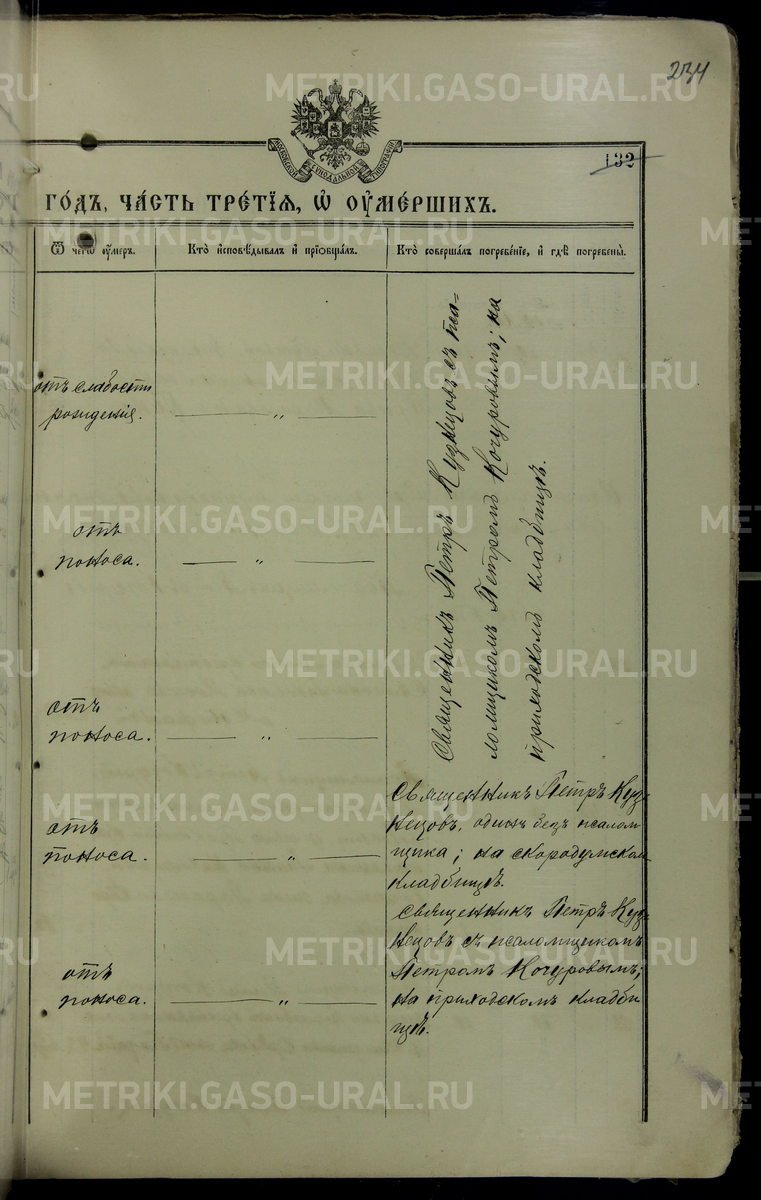 234
132
МОСКОВСКОЙ СѴНОДАЛЬНОЙ ТИПОГРАФІИ
ГО́ДЪ, ЧА́СТЬ ТРЕ́ТІѦ, Ѡ҆ ОУ҆МЕ́РШИХЪ.
Ѿ чегѡ̀ оу҆́меръ.
Кто̀ и҆сповѣ́дывалъ и҆ прїѡбща́лъ.
Кто̀ соверша́лъ погребе́нїе, и҆ гдѣ̀ погребены̀.
отъ слабости
рожденія.
— „ —
Священникъ Петръ Кузнецовъ съ пса-
ломщикомъ Петромъ Кочуровымъ; на
приходскомъ кладбищѣ.
отъ
поноса.
— „ —
отъ
поноса.
— „ —
отъ
поноса.
— „ —
Священникъ Петръ Куз-
нецовъ, одинъ безъ псалом-
щика; на скородумском
кладбищѣ.
отъ
поноса.
— „ —
Священникъ Петръ Куз-
нецовъ съ псаломщикомъ
Петромъ Кочуровымъ;
на приходскомъ кладби
щѣ.
METRIKI.GASO-URAL.RU